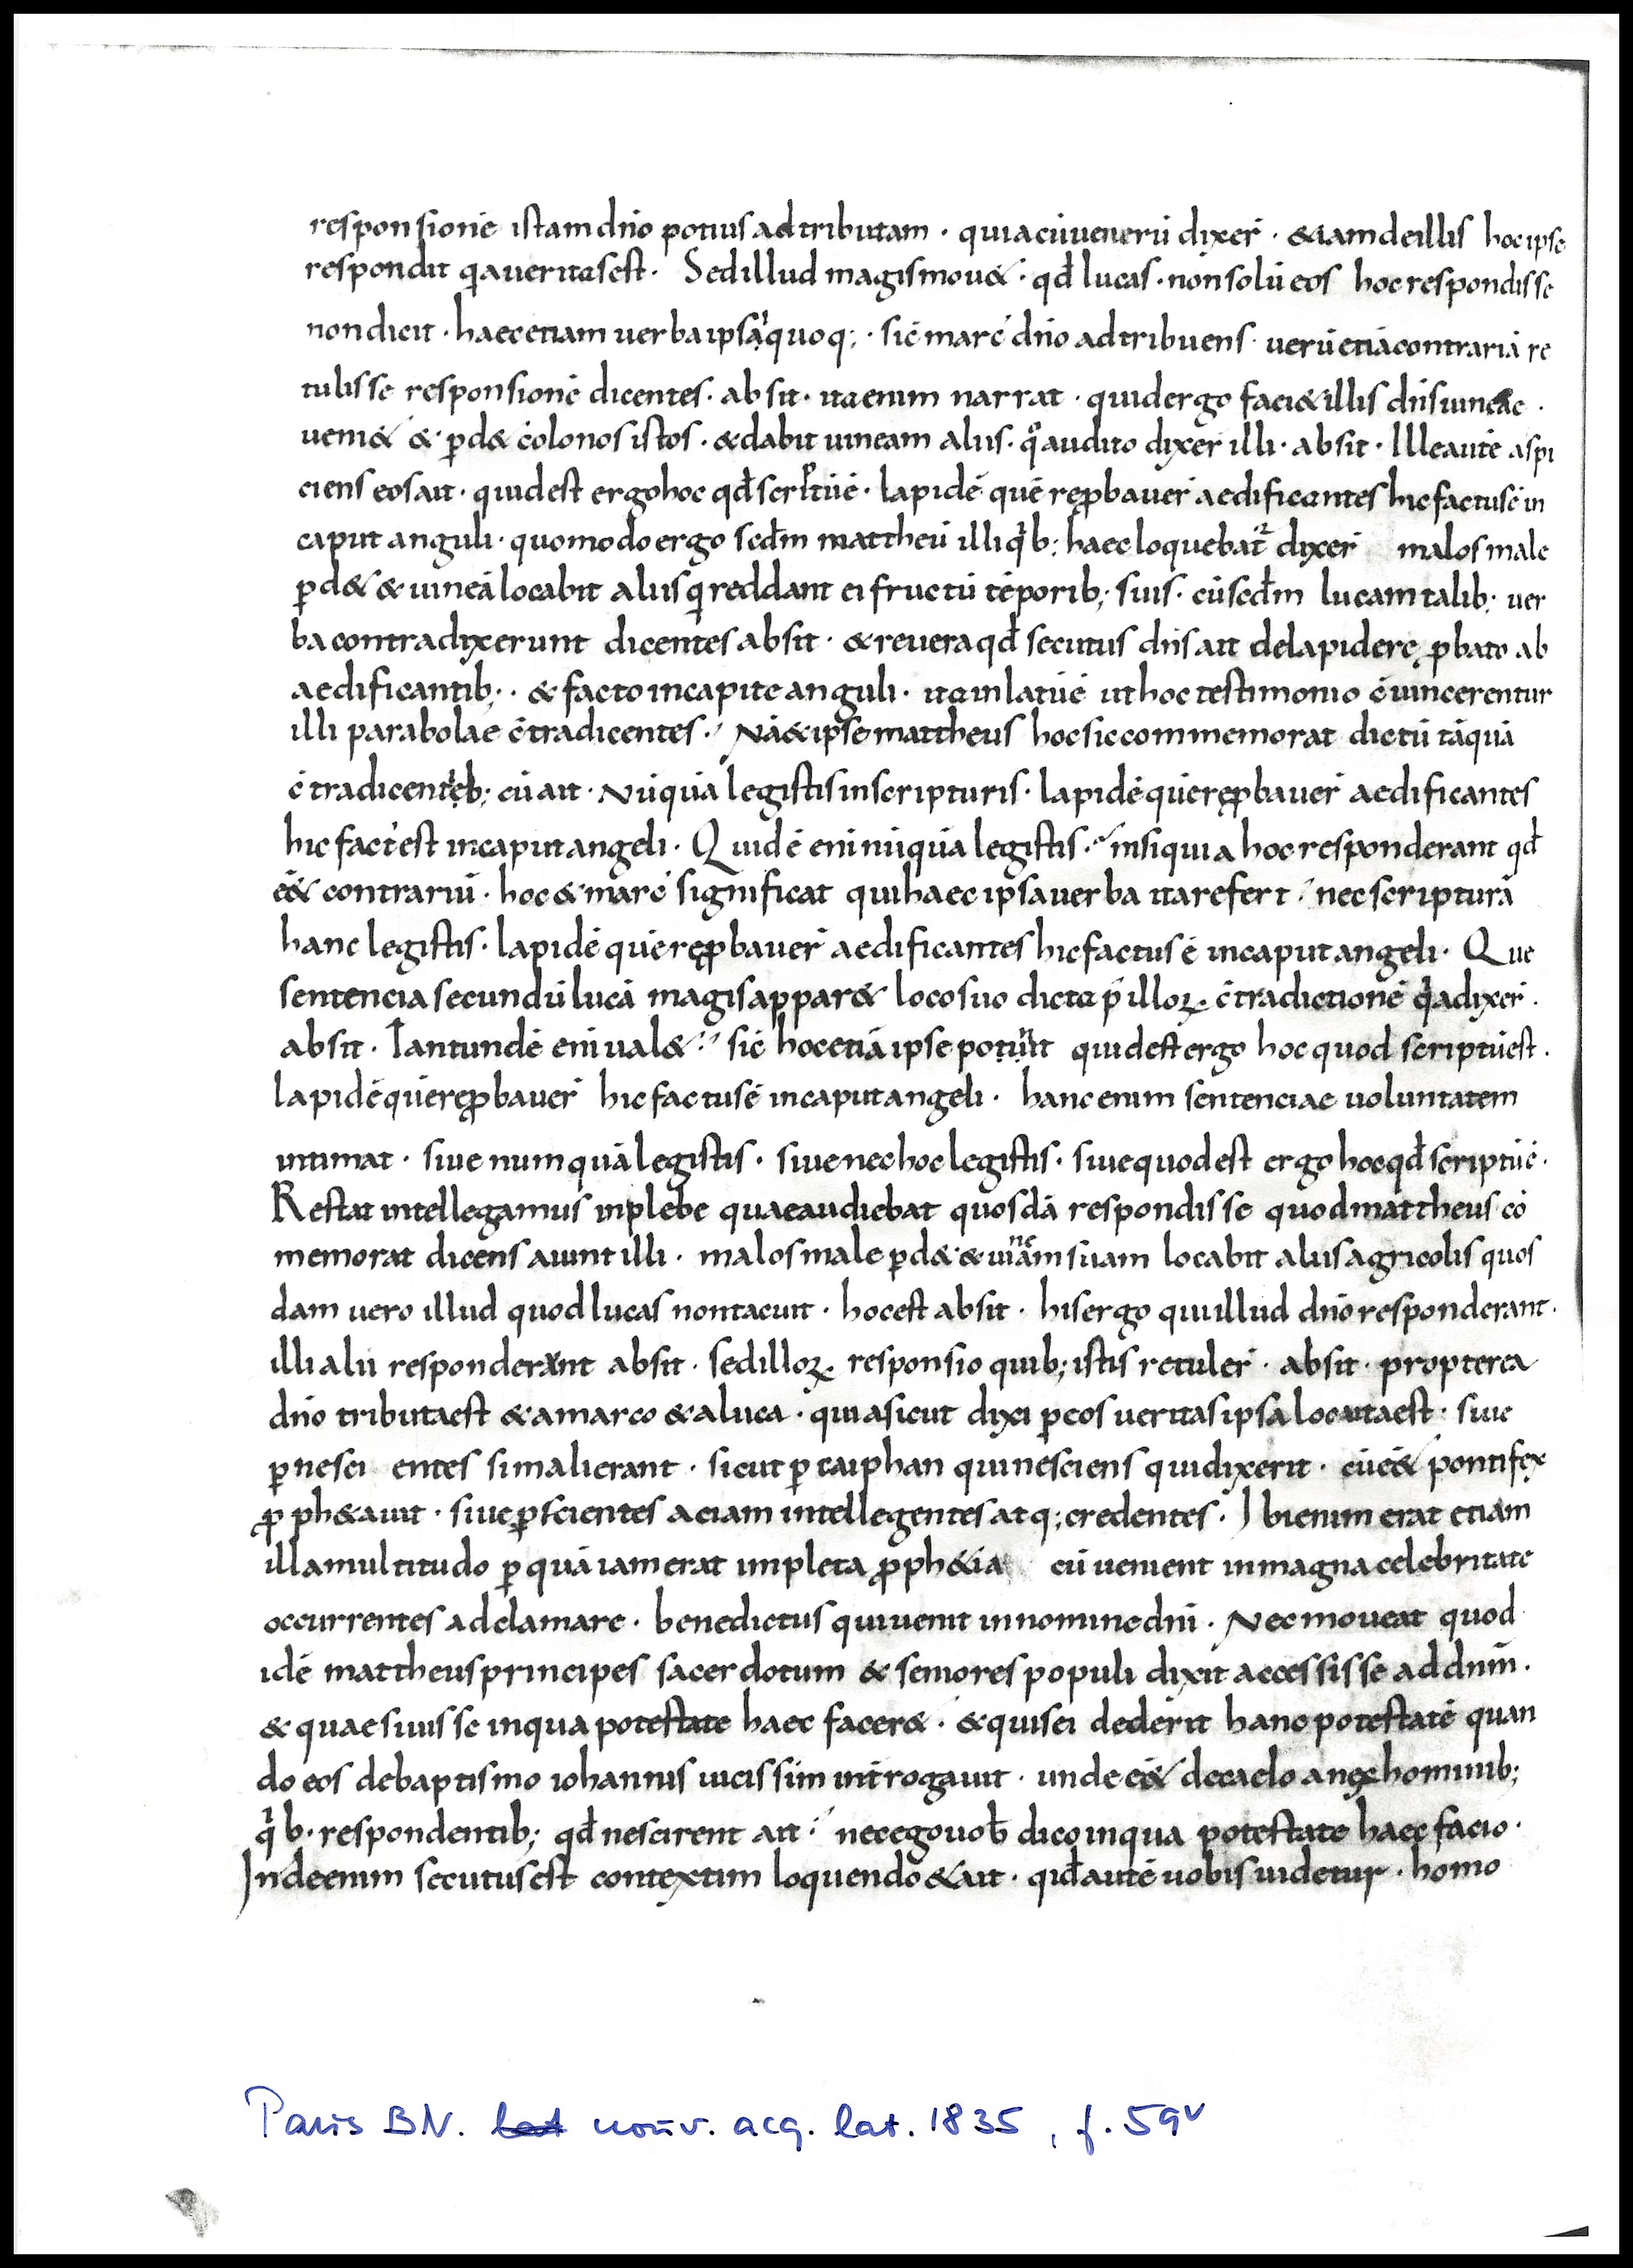 responsionē istam dn̄o potius adtributam · quia cū uenerū dixer̄ · & iam de illis hoc ipse
respondit q̄a ueritas est · Sed illud magis mou& · qđ lucas · non solū eos hoc respondisse
non dicit · haec etiam uerba ipsa quoq; · sic̄ marc̄ dn̄o adtribuens · uerū etiā contrariā re
tulisse responsionē dicentes · absit · ita enim narrat · quid ergo faci& illis dn̄s uineae ·
ueni& & ꝑd& colonos istos · & dabit uineam aliis · qͦ audito dixer̄ illi · absit · Ille autē aspi
ciens eos ait · quid est ergo hoc qđ scriptū ē · lapidē quē reꝓbauer̄ aedificantes hic factus ē in
caput anguli · quomodo ergo scđm mattheū illi qͥb; haec loquebat᷑ dixer̄ malos male
ꝑd& & uineā locabit aliis qͥ reddant ei fructū tēporib; suis · cū scđm lucam talib; uer
ba contradixerunt dicentes absit · & reuera qđ secutus dn̄s ait de lapide reꝓbato ab
aedificantib; · & facto in capite anguli · ita inlatū ē ut hoc testimonio c̄uincerentur
illi parabolae c̄tradicentes · Nā & ipse mattheus hoc sic commemorat dictū tāquā
c̄tradicentib; cū ait · Nūquā legistis in scripturis · lapidē quē reꝓbauer̄ aedificantes
hic fact᾽ est in caput angeli · Quid ē eni nūquā legistis · nisi quia hoc responderant qđ
ē& contrariū · hoc & marc̄ significat qui haec ipsa uerba ita refert · nec scripturā
hanc legistis · lapidē quē reꝓbauer̄ aedificantes hic factus ē in caput angeli · Que
sentencia secundū lucā magis appar& loco suo dicta p̄ illoꝝ c̄tradictionē qͥa dixer̄ ·
absit · Tantundē eni ual& · sic̄ hoc etiā ipse potuit quid est ergo hoc quod scriptū est ·
lapidē quē reꝓbauer̄ hic factus ē in caput angeli · hanc enim sentenciae uoluntatem
intimat · siue numquā legistis · siue nec hoc legistis · siue quod est ergo hoc qđ scriptū ē ·
Restat intellegamus in plebe quae audiebat quosdā respondisse quod mattheus cō
memorat dicens aiunt illi · malos male ꝑd& & uineam suam locabit aliis agricolis quos
dam uero illud quod lucas non tacuit · hoc est absit · his ergo qui illud dn̄o responderant ·
illi alii responderant absit · sed illoꝝ responsio quib; istis retuler̄ · absit · propterea
dn̄o tributa est & a marco & a luca · quia sicut dixi ꝑ eos ueritas ipsa locuta est · siue
ꝑ nesci entes si mali erant · sicut ꝑ caiphan qui nesciens quid dixerit · cū ē& pontifex
ꝓph&auit · siue ꝑ scientes ac iam intellegentes atq; credentes · Ibi enim erat etiam
illa multitudo ꝑ quā iam erat impleta ꝓph&ia cū uenient in magna celebritate
occurrentes adclamare · benedictus qui uenit in nomine dn̄i · Nec moueat quod
idē mattheus principes sacerdotum & seniores populi dixit accessisse ad dn̄m ·
& quaesiuisse in qua potestate haec facer& · & quis ei dederit hanc potestatē quan
do eos de baptismo iohannis uicissim int̄rogauit · unde e& de caelo an ex hominib;
qͥb · respondentib; qđ nescirent ait · nec ego uob̄ dico in qua potestate haec facio ·
Inde enim secutus est contextim loquendo & ait · qđ autē uobis uidetur · homo
Paris BN. nouv. acq. lat. 1835, f. 59v